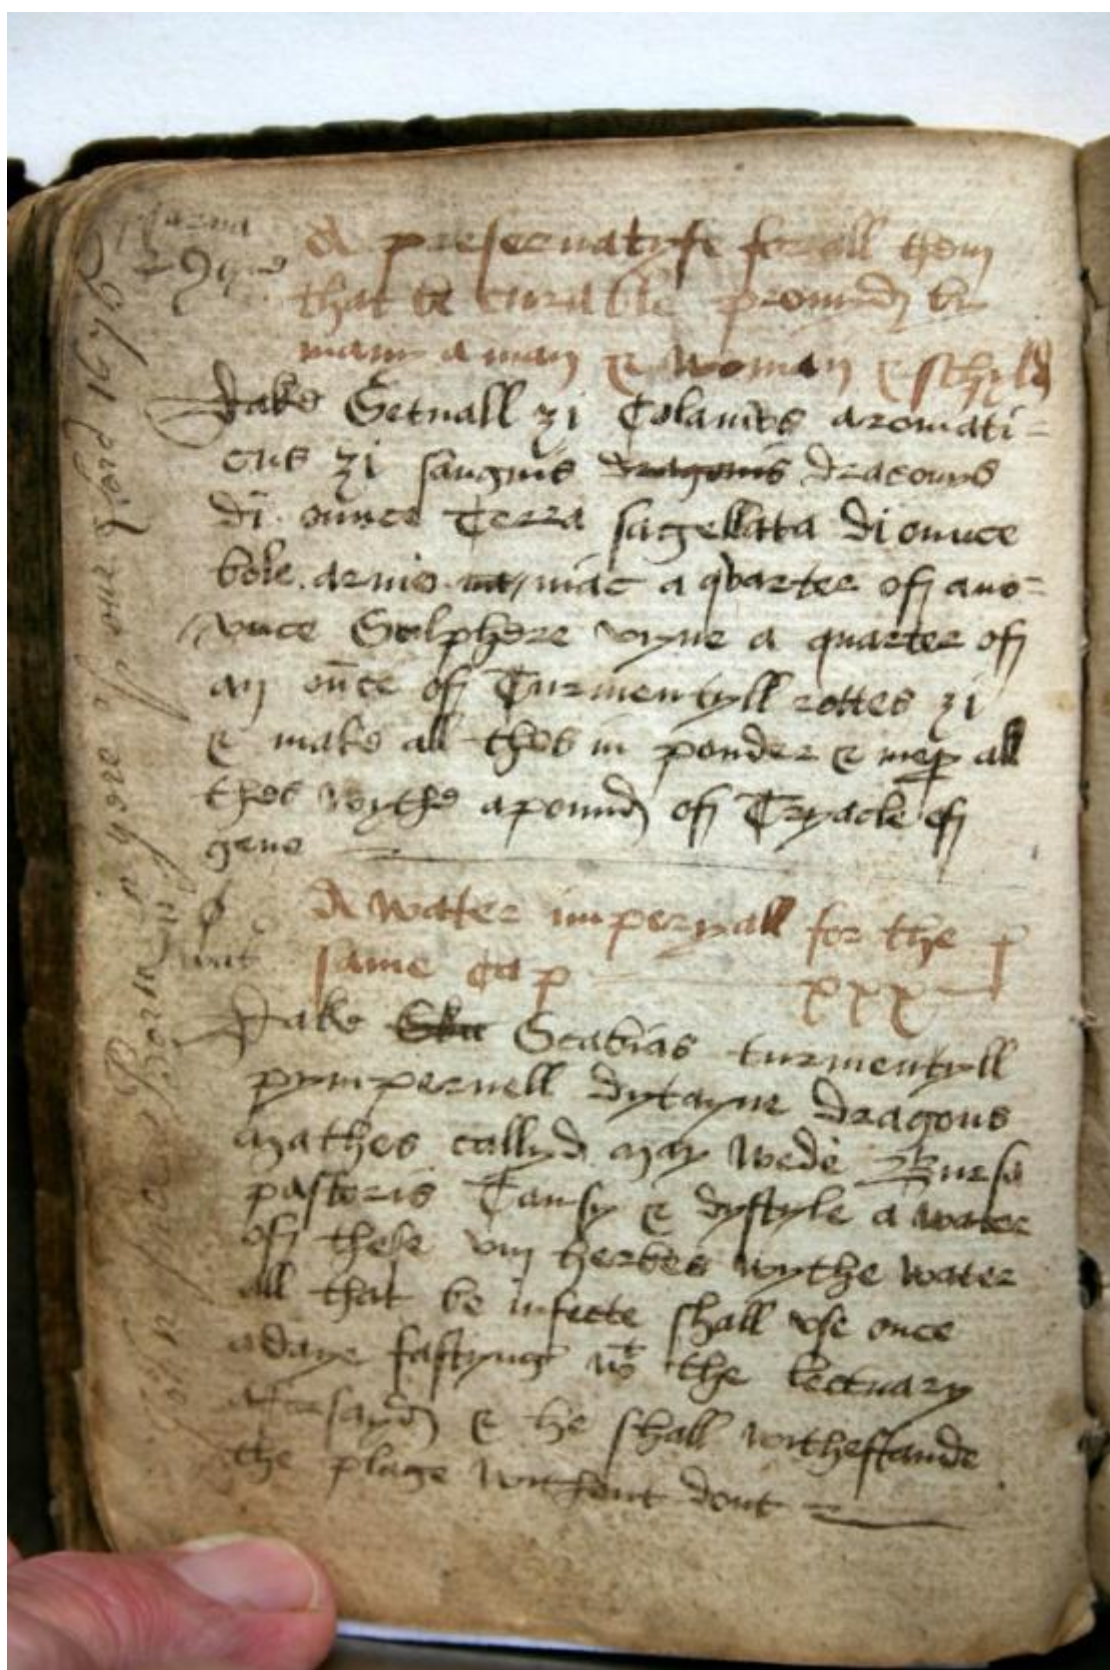 A preseruatyfe for all them
that be curable prouyd by
many a man & woman & schyld
Take Setuall ʒi Colamus aromati=
cus ʒi sanguis dragonis draconys
di ounce Terra sagellata di ounce
bole armo mac a quarter off ano=
unce Solphere vyne a quarter off
an ounce off Turmentyll rottes ʒi
& make all thes in pouder & all
thes wythe a pound off Tryacle off
gene
A water imperyall for the
same cap xxx
Take Scabias turmentyll
pympernell dytayne dragons
mathes callyd may wede Bursa
pastoris Tansy & dystyle a water
off these viij herbes wythe water
all that be infecte shall vse once
a daye fastyng wt the lectuary
aforsayd & he shall withestande
the plage without dout
John Born in yere of our Lord 1676